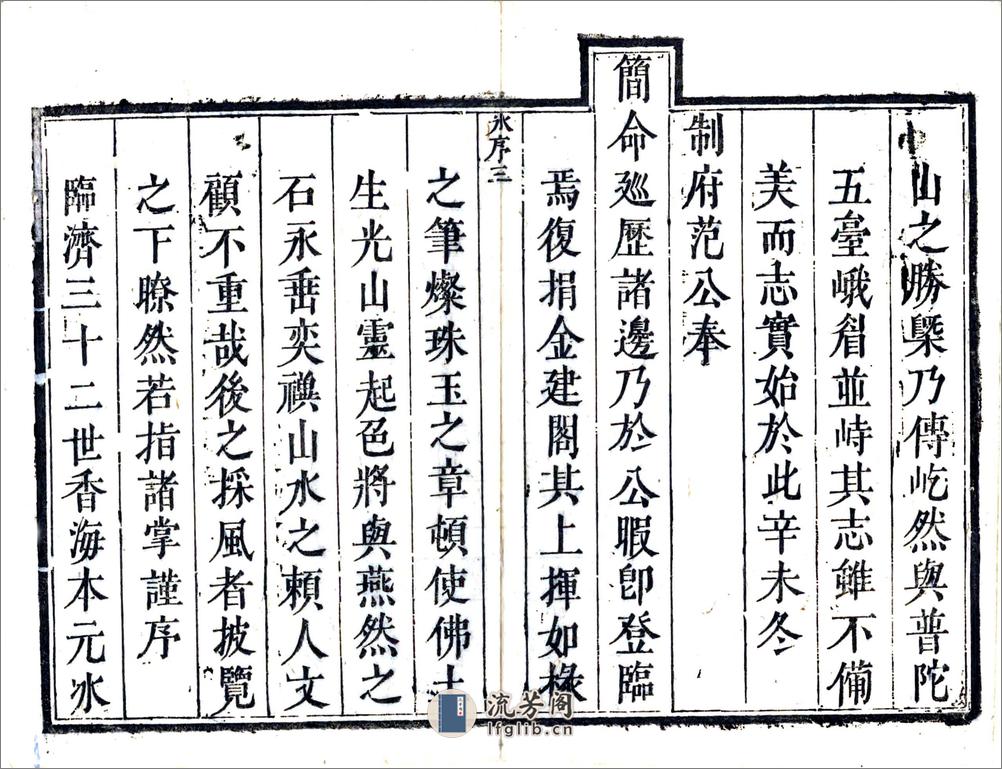 山之勝槩乃傳屹然與普陀
五臺峨眉並峙其志雖不備
美而志實始於此辛未冬
制府范公奉
簡命廵歷諸邊乃於公暇卽登臨
焉復捐金建閣其上揮如椽
氷序三
之筆燦珠玉之章頓使佛土
生光山靈起色將與燕然之
石永垂奕禩山水之賴人文
顧不重哉後之採風者披覽
之下瞭然若指諸掌謹序
臨濟三十二世香海本元氷
流芳阁
lfglib.cn